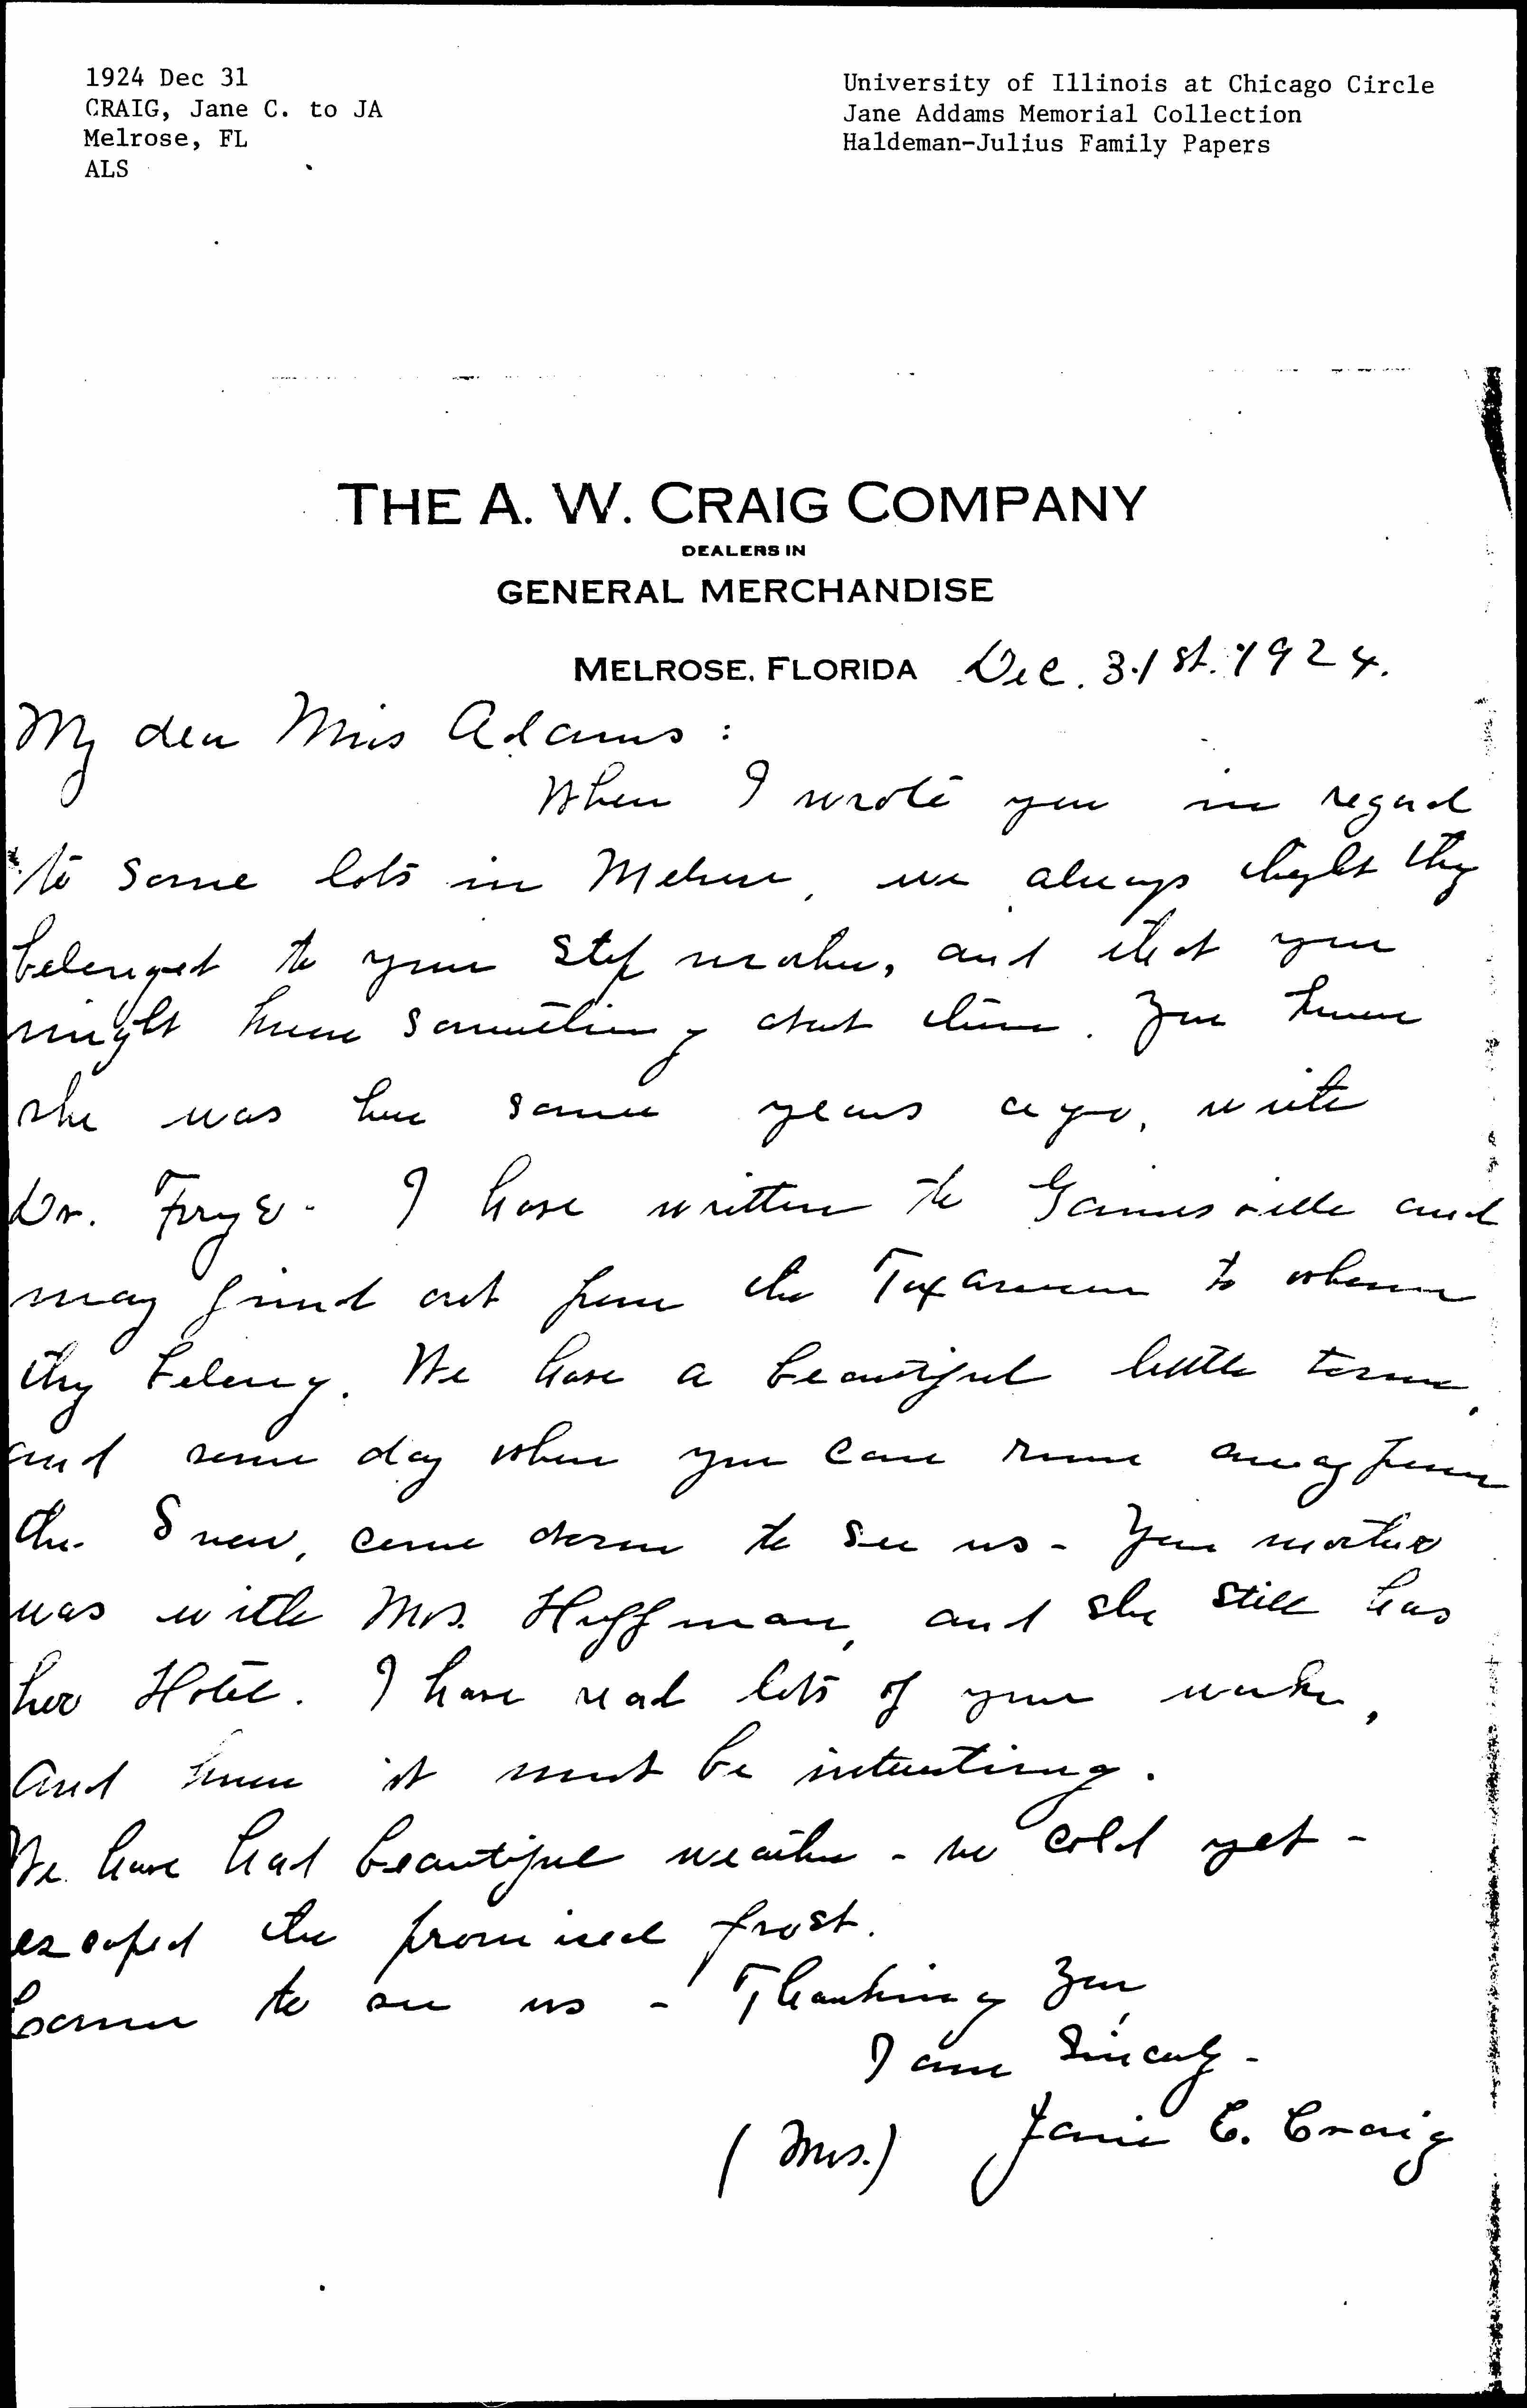 1924 Dec 31
CRAIG, Jane C. to JA
Melrose, FL
ALS
University of Illinois at Chicago Circle
Jane Addams Memorial Collection
Haldeman-Julius Family Papers
THE A. W. CRAIG COMPANY
DEALERS IN
GENERAL MERCHANDISE
MELROSE, FLORIDA Dec. 31st. 1924.
My dear Miss Adams:
When I wrote you in regard
to some lots in Melrose, we always thought they
belonged to your step mother, and that you
might know something about them. You know
she was here some years ago, with
Dr. I have written to Gainesville and
may find out from the Tax assessor to whom
they belong. We have a beautiful little town,
and some day when you can run away from
the Snow, come down to see us - Your mother
was with Mrs. Huffman, and she still has
her Hotel. I have read lots of your work,
and know it must be interesting.
We have had beautiful weather - no cold yet -
escaped the promised frost.
Come to see us - Thanking you,
I am Sincerely -
(Mrs.) Janie C. Craig